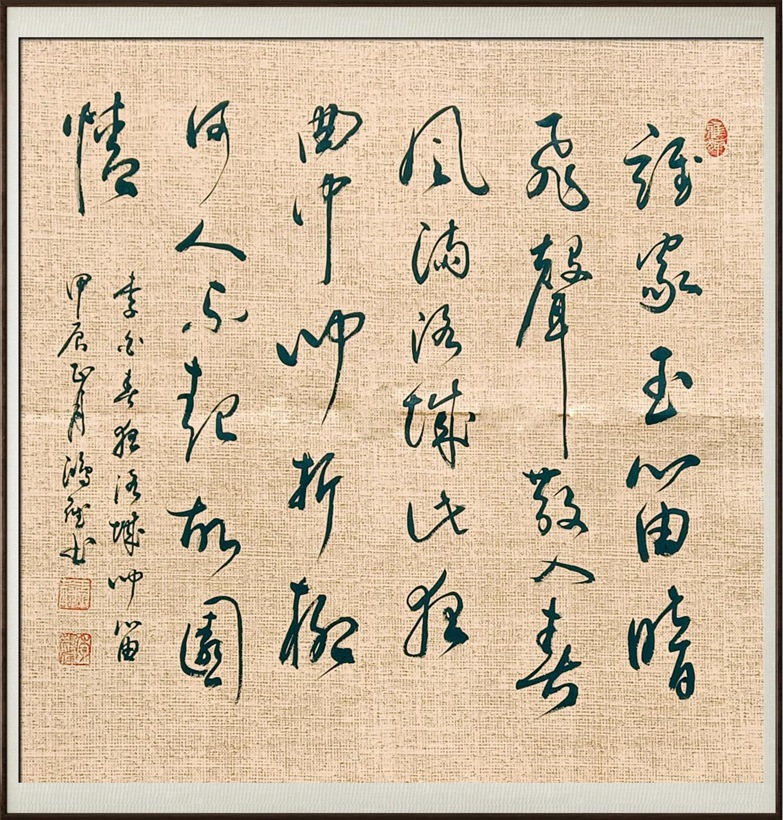 誰家玉笛暗
飛聲散入春
風滿洛城此夜
曲中聞折柳
何人不起故園
情
李白春夜洛城聞笛
甲辰正月鴻書